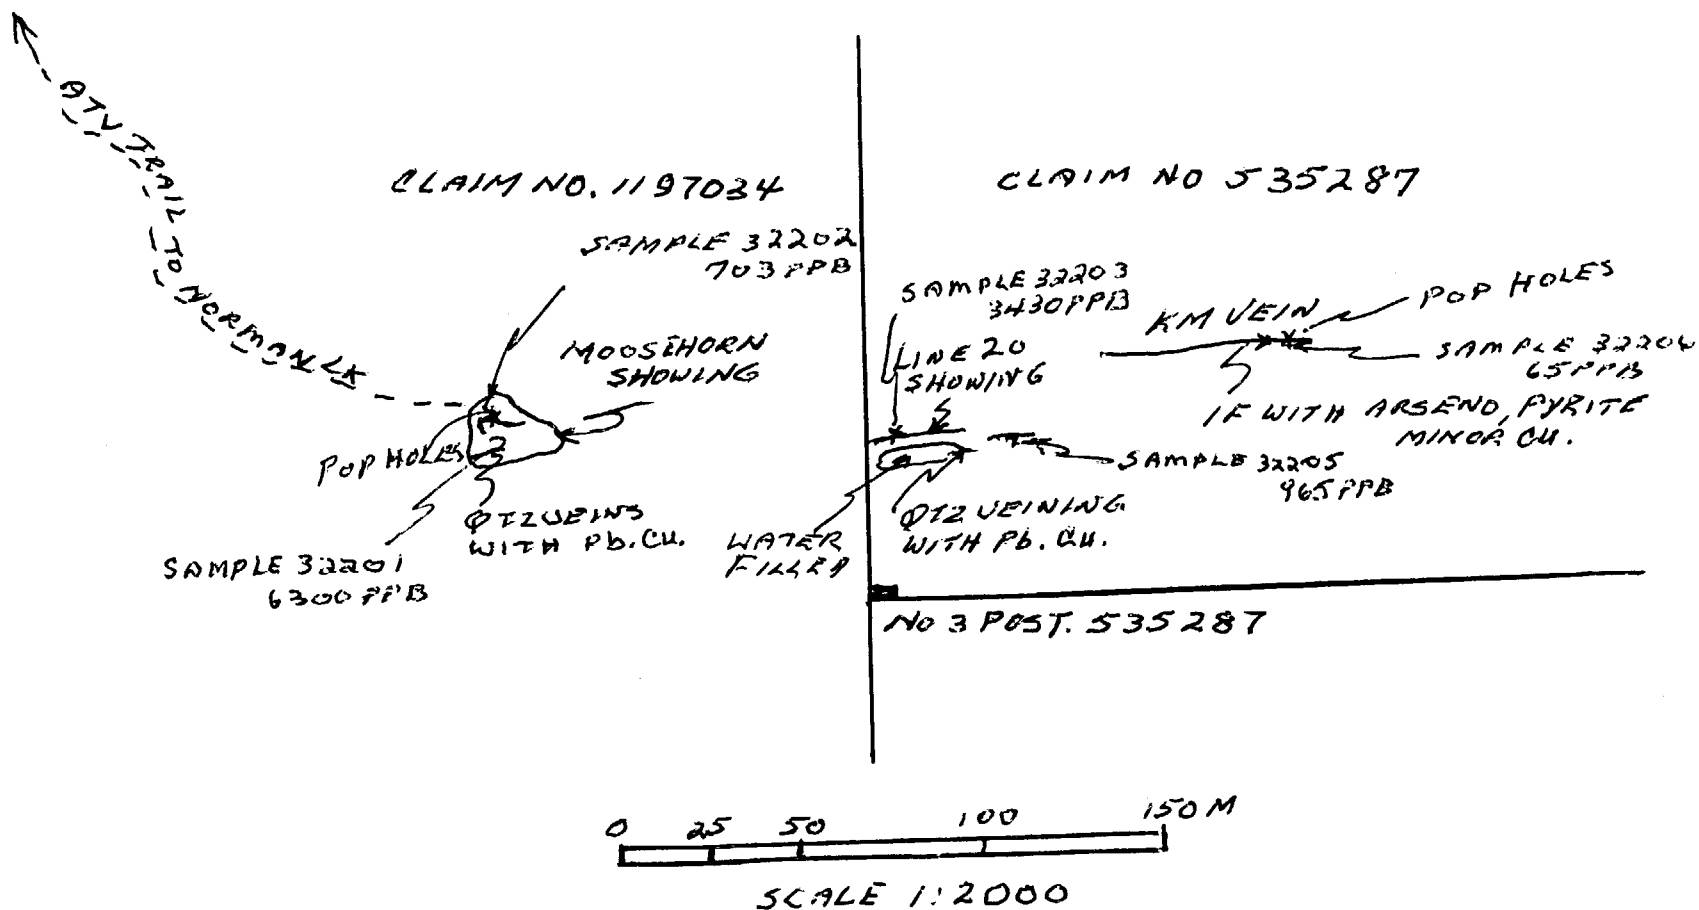 ATV TRAIL TO NORMAN LK
CLAIM NO. 1197034
SAMPLE 32202
703 PPB
MOOSEHORN
SHOWING
POP HOLES
QTZ VEINS
WITH Pb. CU.
SAMPLE 32201
6300 PPB
CLAIM NO 535287
SAMPLE 32203
3430 PPB
LINE 20
SHOWING
KM VEIN
POP HOLES
SAMPLE 32204
65 PPB
IF WITH ARSENO, PYRITE
MINOR CU.
SAMPLE 32205
965 PPB
QTZ VEINING
WITH Pb. CU.
WATER
FILLED
NO 3 POST. 535287
0 25 50 100 150 M
SCALE 1:2000